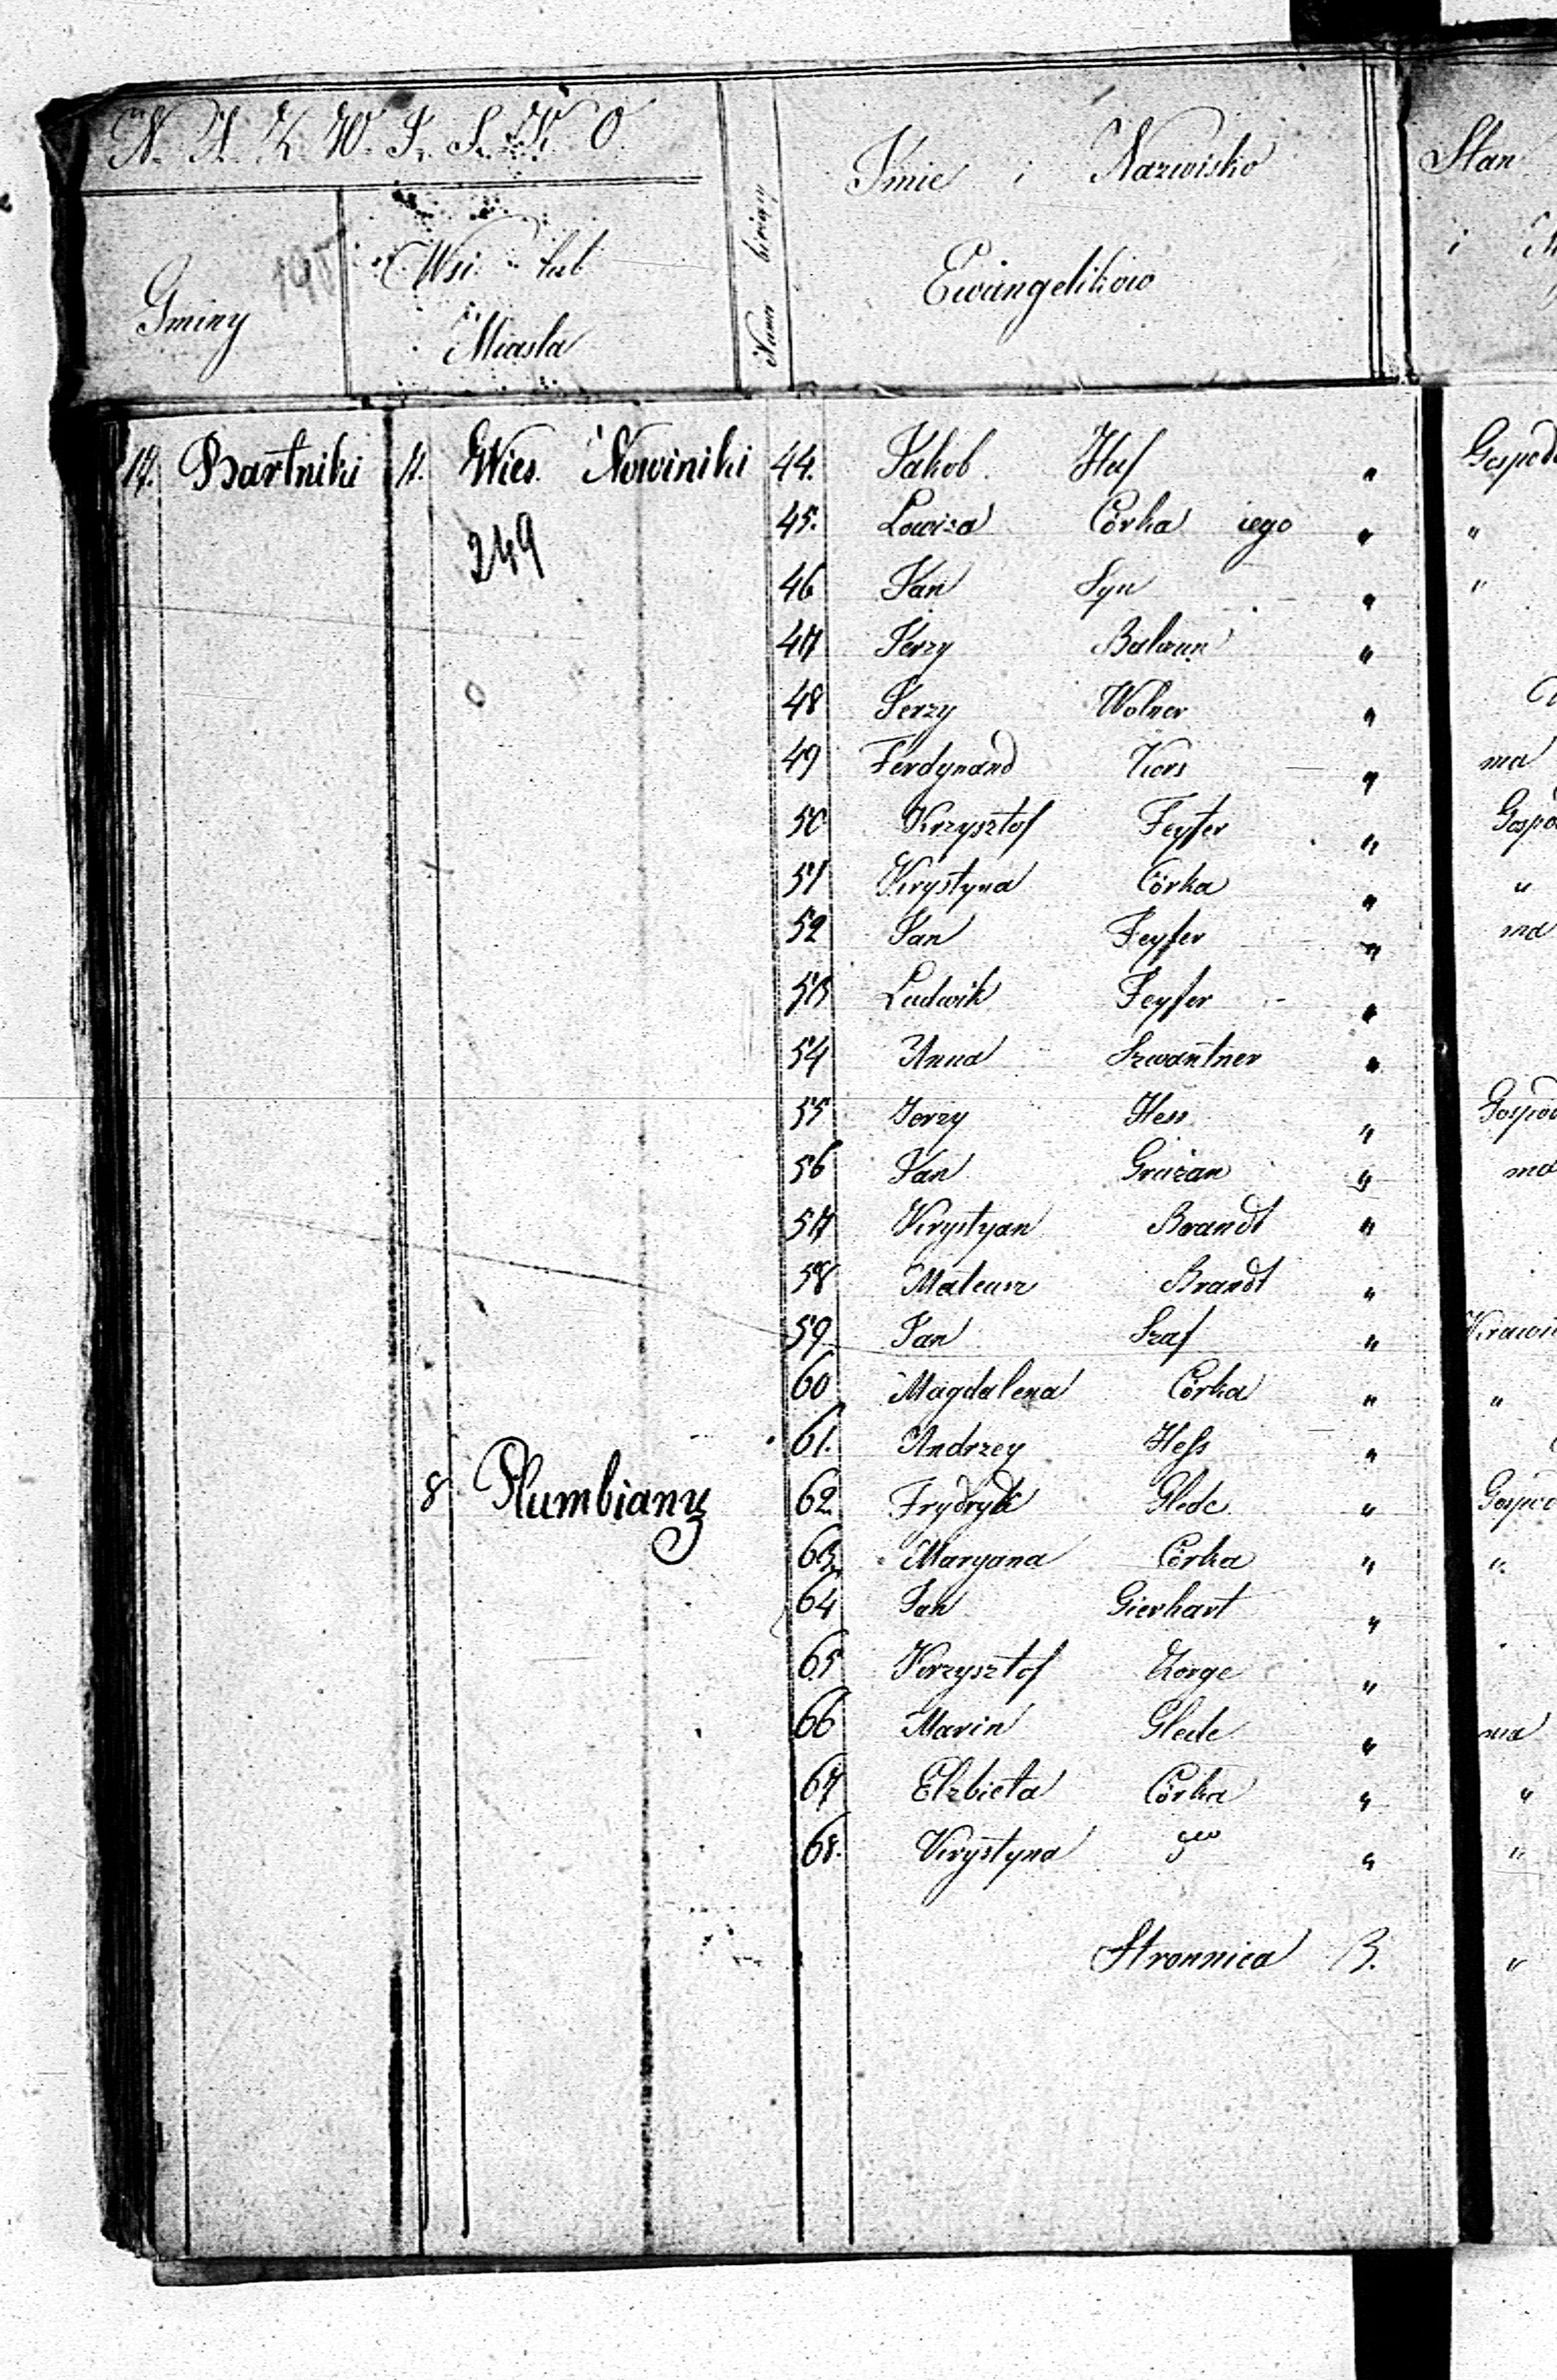 N. A. Z. W. I. S. K. O.
Gminy
Wsi lub
Miasta
Numer bieżący
Imie i Nazwisko
Ewangelikow
Stan
i
17. Bartniki 7. Wies Nowiniki 44. Jakob Haf " Gospod
249
45. Lowiza Córka iego " "
46 Jan Syn " "
47 Jerzy Balaun "
48 Jerzy Wolner "
49 Ferdynand Kors " ma
50 Krzysztof Feyfer " Gospo
51 Krystyna Córka " "
52 Jan Feyfer " ma
53 Ludwik Feyfer "
54 Anna Szwantner "
55 Jerzy Hess " Gospod
56 Jan Gruzan " ma
57 Krystyan Brandt "
58 Mateusz Brandt "
59 Jan Szaf " Krawi
60 Magdalena Córka " "
61. Andrzey Hess "
8 Plumbiany 62 Frydryk Glede " Gospo
63 Maryana Córka " "
64 Jan Gierhart "
65 Krzysztof Zorge "
66 Marin Glede " ma
67 Elzbieta Córka " "
68. Krystyna " "
Stronnica 3. "